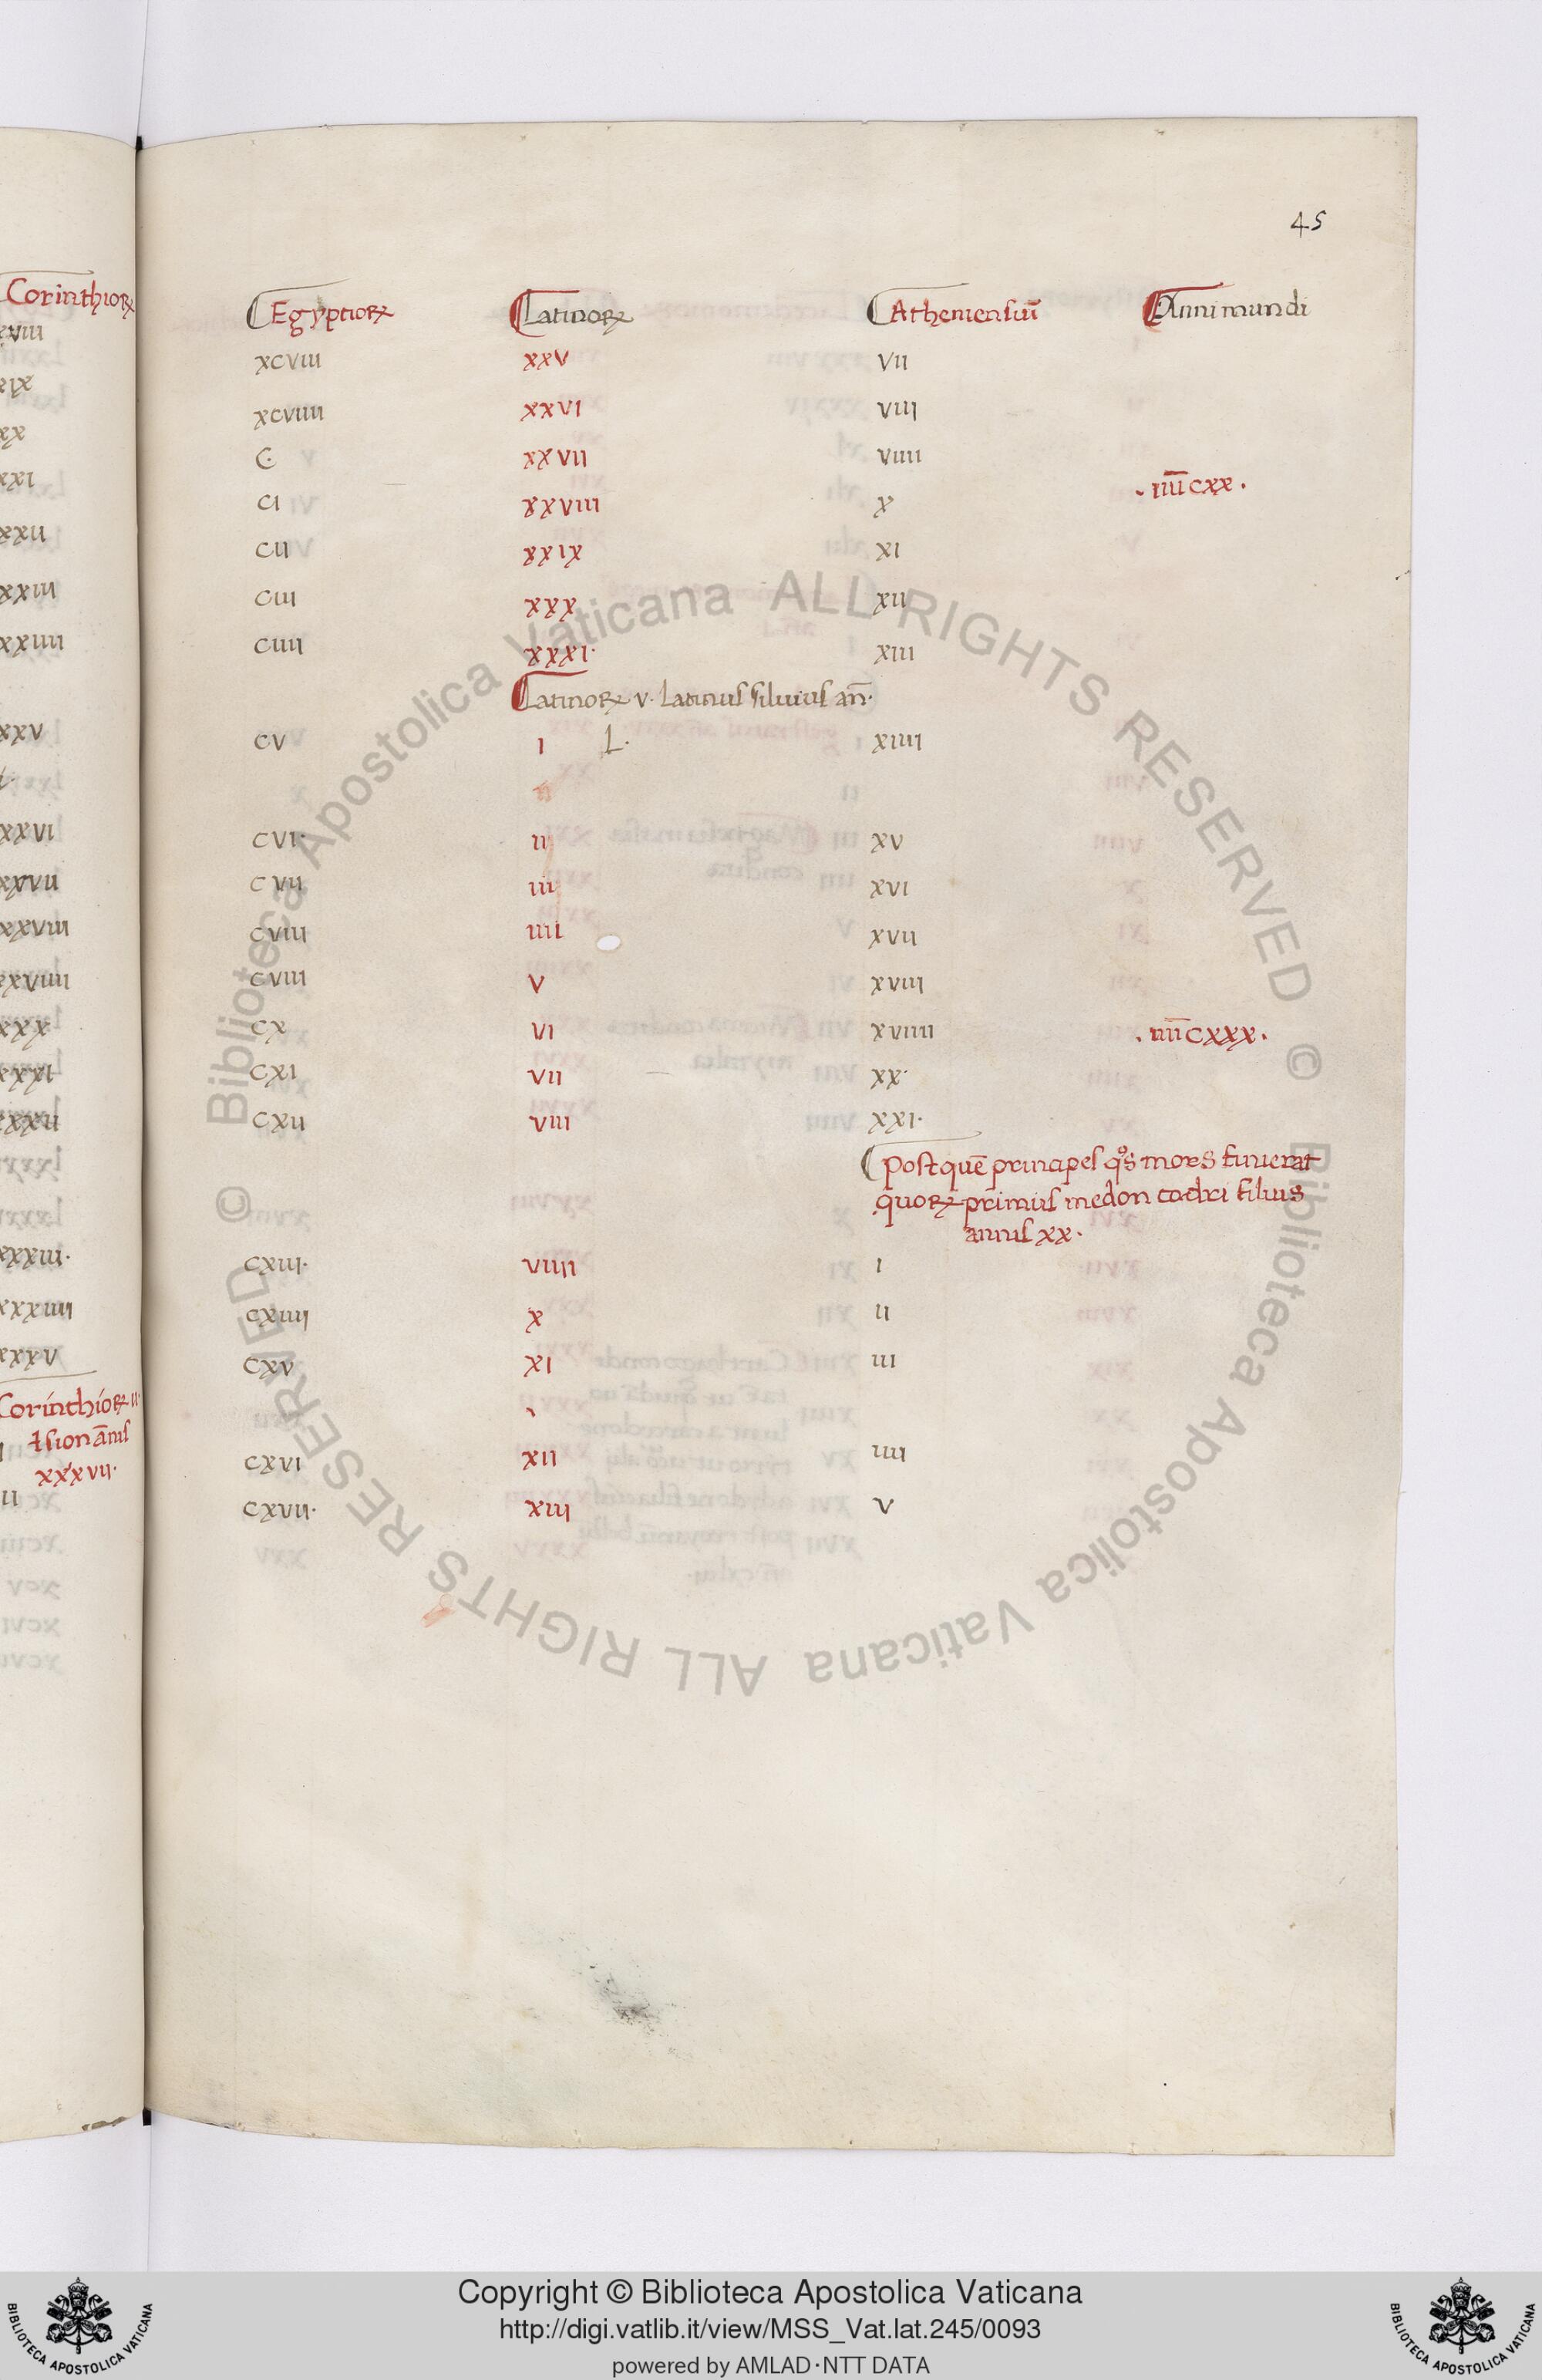 45
Corinthioꝝ
xviii
xix
xx
xxi
xxii
xxiii
xxiiii
xxv
xxvi
xxvii
xxviii
xxviiii
xxx
xxxi
xxxii
xxxiii·
xxxiiii
xxxv
Corinthioꝝ ii·
Ixion ānis
xxxvii·
ii
Egyptioꝝ Latinoꝝ Atheniensiū Anni mundi
xcviii xxv vii
xcviiii xxvi viii
C· xxvii viiii
·iiii̅cxx·
ci xxviii x
cii xxix xi
ciii xxx xii
ciiii xxxi· xiii
Latinoꝝ v· Latinus siluius an̄·
cv i L· xiiii
cvi· ii xv
cvii iii xvi
cviii iiii xvii
cviiii v xviii
cx vi xviiii ·iiii̅cxxx·
cxi vii xx·
cxii viii xxi·
Post quē principes qͦs mors finierat
quoꝝ primus medon codri filius
annis xx·
cxiii· viiii i
cxiiii x ii
cxv xi iii
cxvi xii iiii
cxvii· xiii v
© Biblioteca Apostolica Vaticana ALL RIGHTS RESERVED © Biblioteca Apostolica Vaticana ALL RIGHTS RESERVED
Copyright © Biblioteca Apostolica Vaticana
http://digi.vatlib.it/view/MSS_Vat.lat.245/0093
powered by AMLAD·NTT DATA
BIBLIOTECA APOSTOLICA VATICANA
BIBLIOTECA APOSTOLICA VATICANA